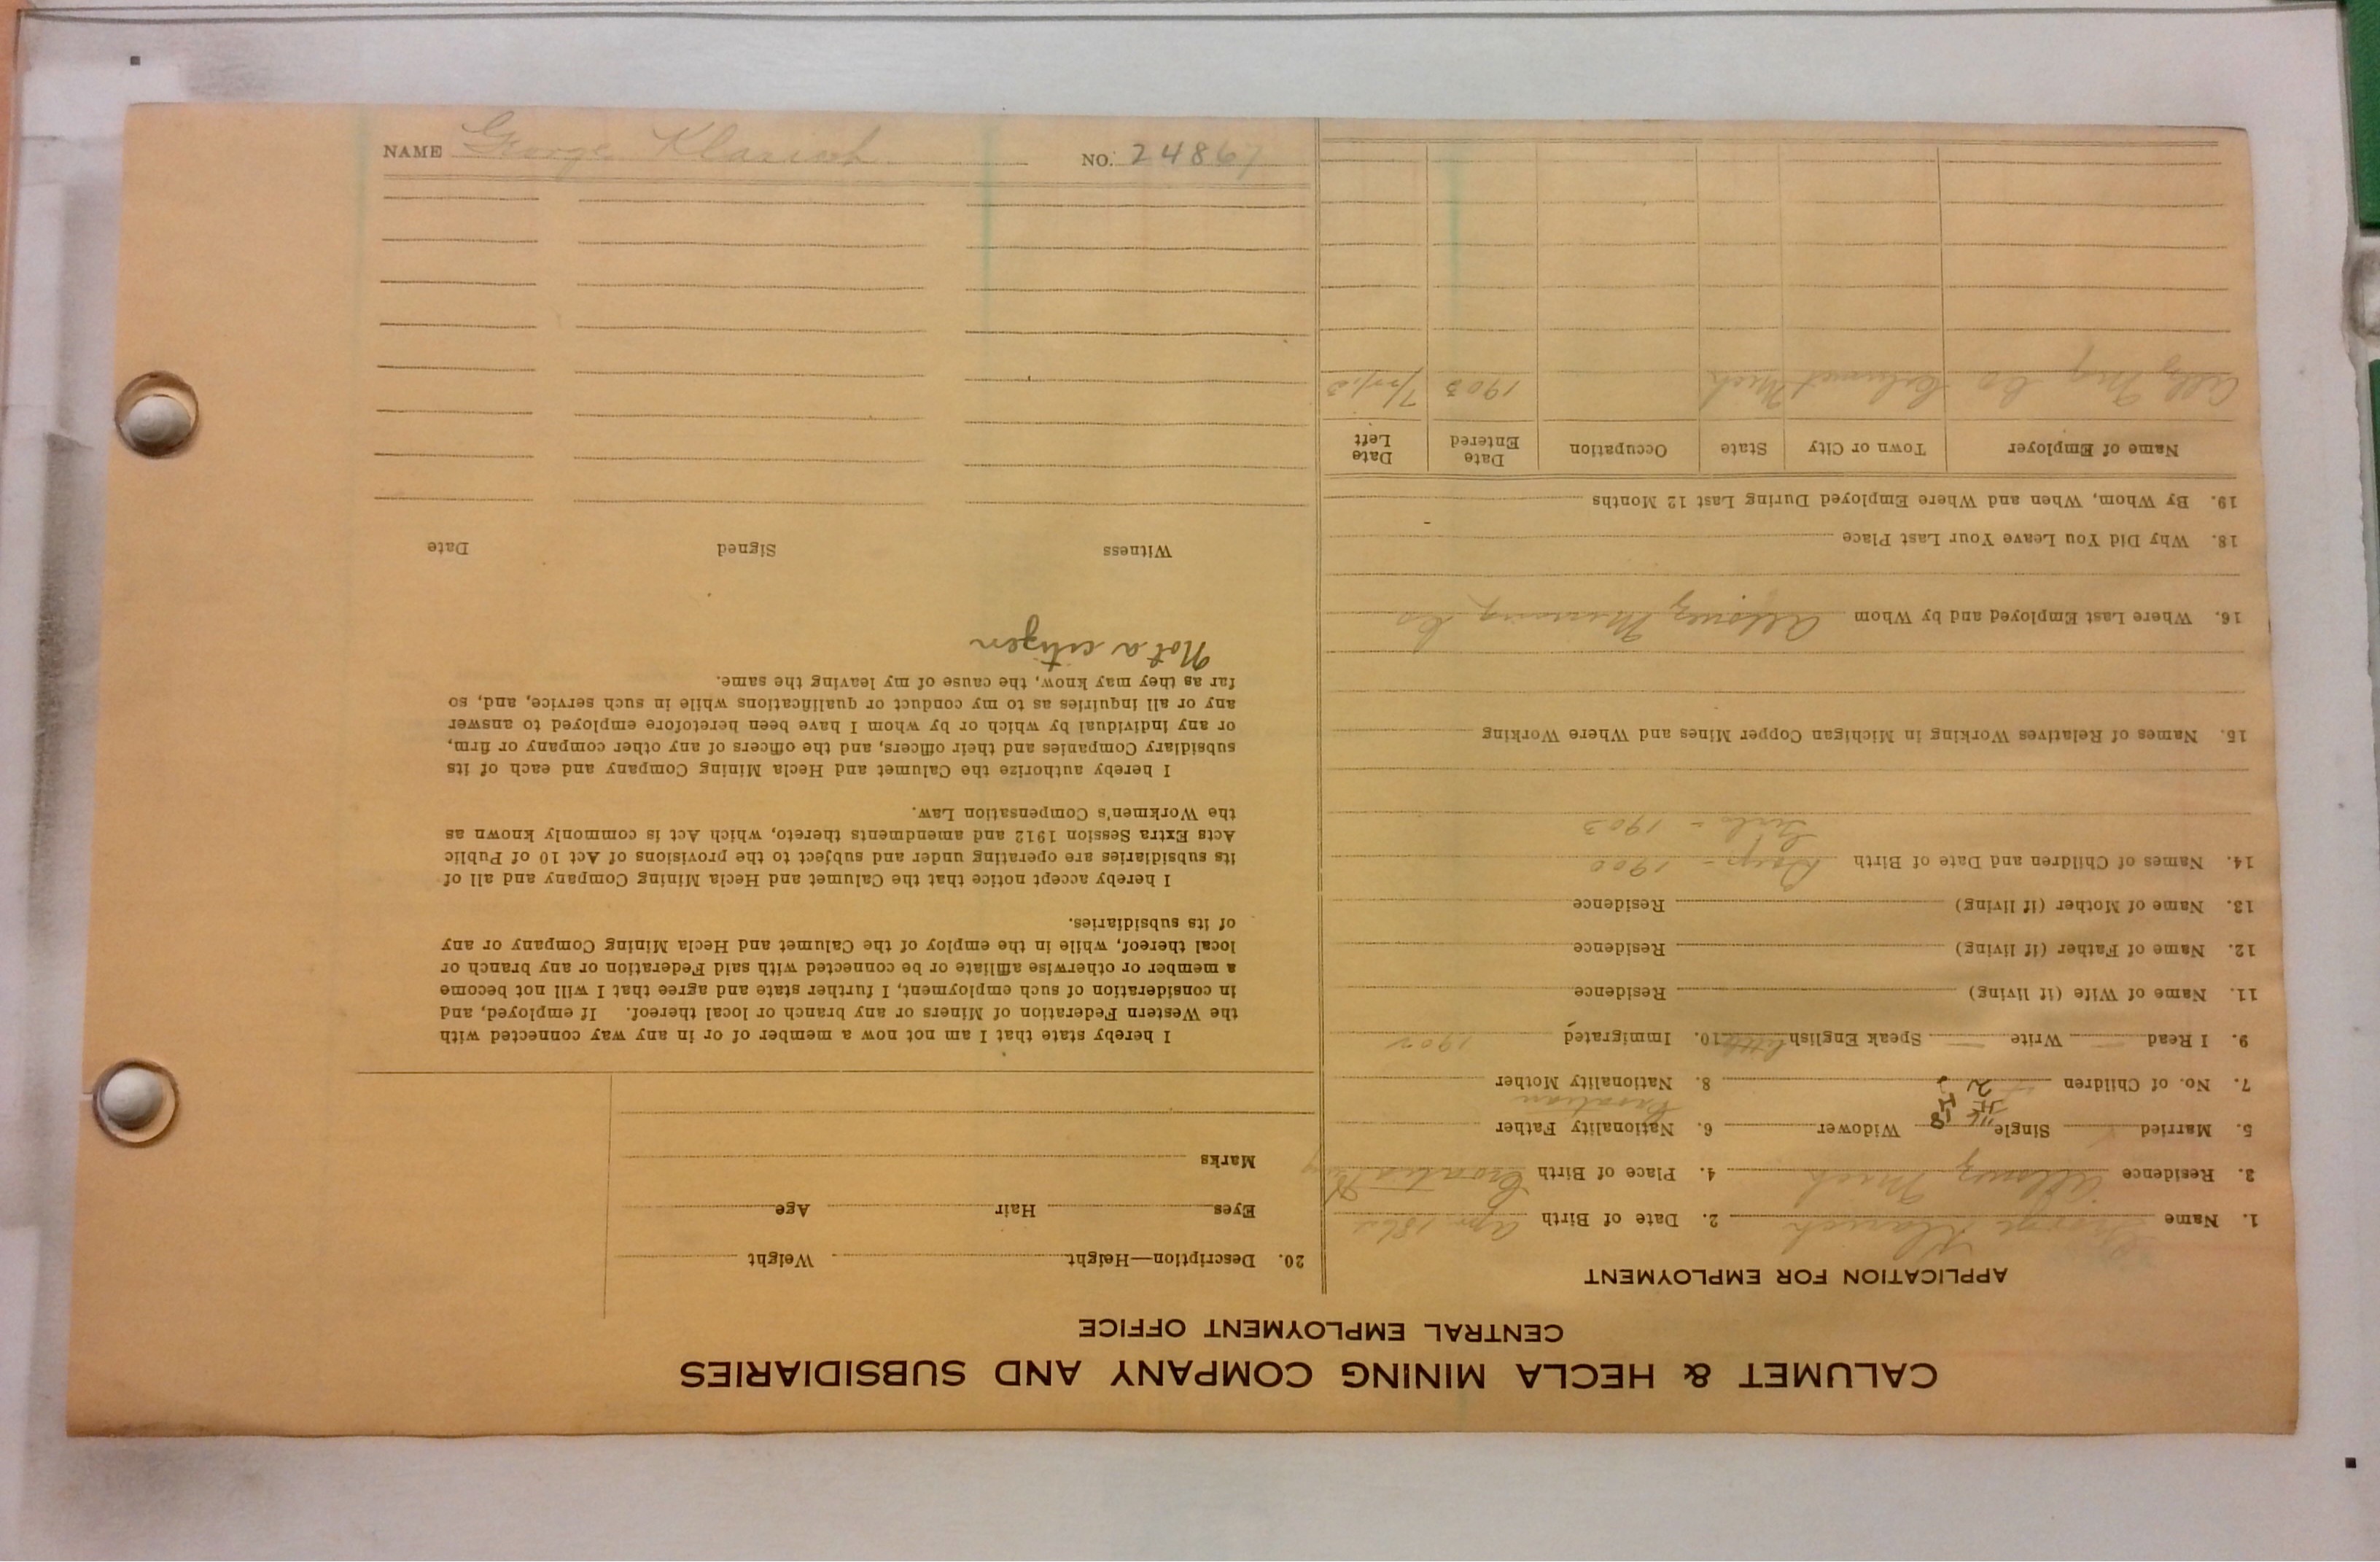 CALUMET & HECLA MINING COMPANY AND SUBSIDIARIES
CENTRAL EMPLOYMENT OFFICE
APPLICATION FOR EMPLOYMENT
1. Name George Klarich 2. Date of Birth Apr
3. Residence Allouez Mich 4. Place of Birth Croatia
5. Married Single Widower 6. Nationality Father
Croatian
7. No. of Children 2 8. Nationality Mother
9. I Read — Write — Speak English little 10. Immigrated 1902
11. Name of Wife (if living) Residence
12. Name of Father (if living) Residence
13. Name of Mother (if living) Residence
14. Names of Children and Date of Birth Boys - 1900
Girls - 1903
15. Names of Relatives Working in Michigan Copper Mines and Where Working
16. Where Last Employed and by Whom Allouez Mining Co
18. Why Did You Leave Your Last Place
19. By Whom, When and Where Employed During Last 12 Months
Name of Employer Town or City State Occupation Date Entered Date Left
Mng Co Calumet Mich Mich 1903
20. Description—Height Weight
Eyes Hair Age
Marks
I hereby state that I am not now a member of or in any way connected with
the Western Federation of Miners or any branch or local thereof. If employed, and
in consideration of such employment, I further state and agree that I will not become
a member or otherwise affiliate or be connected with said Federation or any branch or
local thereof, while in the employ of the Calumet and Hecla Mining Company or any
of its subsidiaries.
I hereby accept notice that the Calumet and Hecla Mining Company and all of
its subsidiaries are operating under and subject to the provisions of Act 10 of Public
Acts Extra Session 1912 and amendments thereto, which Act is commonly known as
the Workmen's Compensation Law.
I hereby authorize the Calumet and Hecla Mining Company and each of its
subsidiary Companies and their officers, and the officers of any other company or firm,
or any individual by which or by whom I have been heretofore employed to answer
any or all inquiries as to my conduct or qualifications while in such service, and, so
far as they may know, the cause of my leaving the same.
Not a citizen
Witness Signed Date
NAME George Klarich NO. 24867